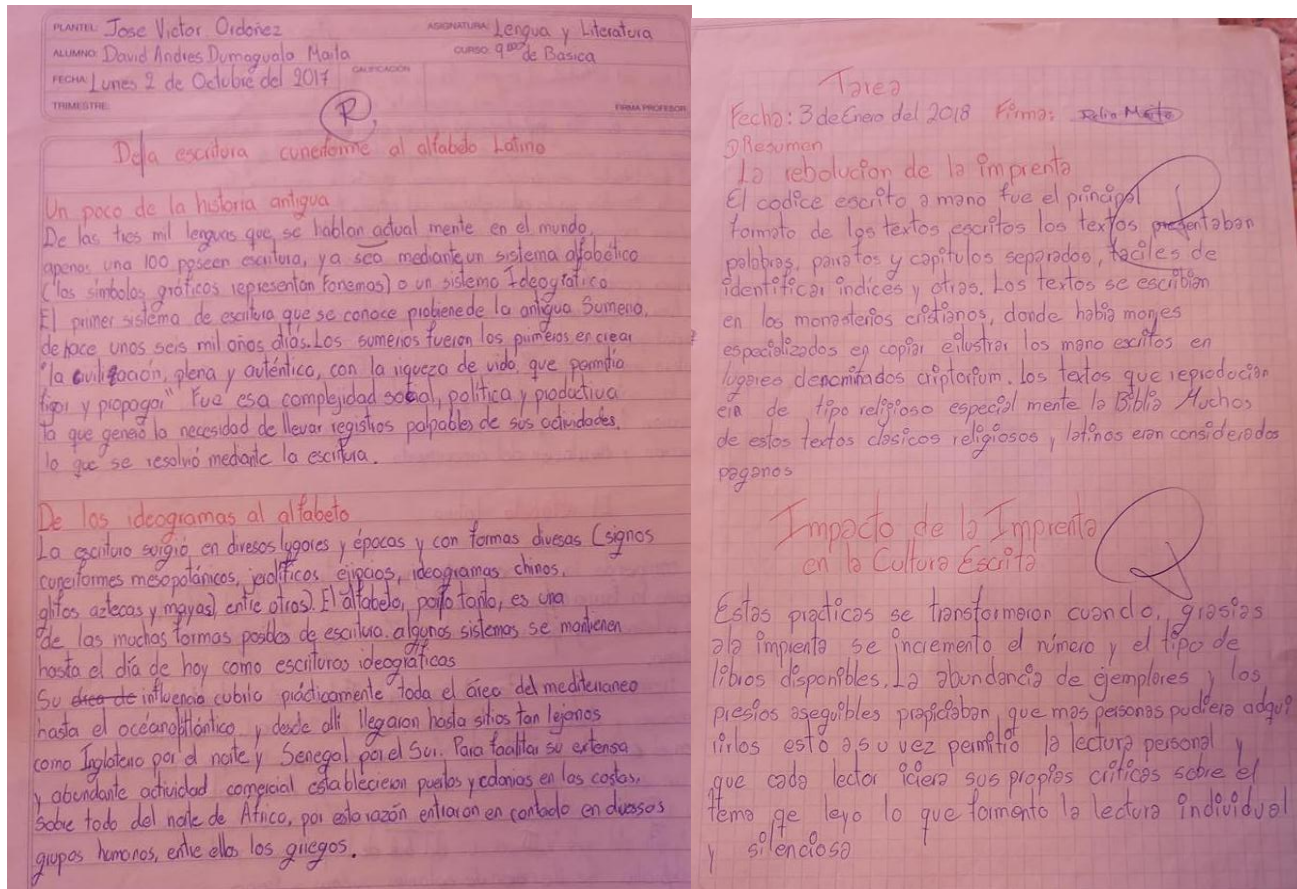 PLANTEL: Jose Victor Ordoñez ASIGNATURA: Lengua y Literatura
ALUMNO: David Andres Dumaguala Maita CURSO: 9no de Basica
FECHA: Lunes 2 de Octubre del 2017 CALIFICACIÓN
TRIMESTRE: FIRMA PROFESOR
R
De la escritura cuneiforme al alfabeto Latino
Un poco de la historia antigua
De las tres mil lenguas que se hablan actual mente en el mundo,
apenas una 100 poseen escritura, ya sea mediante un sistema alfabético
(los simbolos gráficos representan fonemas) o un sistema Ideografico
El primer sistema de escritura que se conoce probiene de la antigua Sumeria,
de hace unos seis mil años atrás. Los sumerios fueron los primeros en crear
"la civilización, plena y auténtica, con la riqueza de vida que permitía
fijar y propagar" Fue esa complejidad social, política y productiva
la que generó la necesidad de llevar registros palpables de sus actividades,
lo que se resolvió mediante la escritura.
De los ideogramas al alfabeto
La escritura surgió en diversos lugares y épocas y con formas divesas (signos
cuneiformes mesopotánicos, jerolíficos ejipcios, ideogramas chinos,
glifos aztecas y mayas) entre otros). El alfabeto, por lo tanto, es una
de las muchas formas posibles de escritura. algunos sistemas se mantienen
hasta el día de hoy como escrituras ideográficas
Su area de influencia cubrio prácticamente toda el área del mediterraneo
hasta el océano Atlántico y desde alli llegaron hasta sitios tan lejanos
como Inglaterra por el norte y Senegal por el Sur. Para facilitar su extensa
y abundante actividad comercial establecieron puertos y colonias en las costas,
sobre todo del norte de África, por esta razón entraron en contacto en diversos
grupos humanos, entre ellos los griegos.
Tarea
Fecha: 3 de Enero del 2018 Firma:
Resumen
La rebolucion de la imprenta
El codice escrito a mano fue el principal
formato de los textos escritos los textos presentaban
palabras, parrafos y capitulos separados, faciles de
identificar indices y otras. Los textos se escribian
en los monasterios cristianos, donde habia monjes
especializados en copiar e ilustrar los mano escritos en
lugares denominados criptorium. Los textos que reproducian
era de tipo religioso especial mente la Biblia Muchos
de estos textos clasicos religiosos y latinos eran considerados
paganos
Impacto de la Imprenta
en la Cultura Escrita
Estas practicas se transformaron cuando, grasias
ala imprenta se incremento el número y el tipo de
libros disponibles. La abundancia de ejemplares y los
presios asequibles propiciaban, que mas personas pudiera adqui
rirlos esto a su vez permitió la lectura personal y
que cada lector iciera sus propias criticas sobre el
tema qe leyo lo que formento la lectura individual
y silenciosa